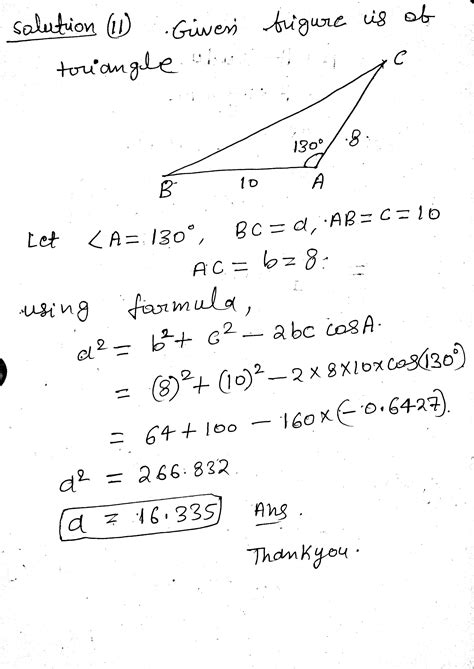 Solution (11) . Given figure is of
triangle
C
130° 8.
B 10 A
Let ∠A = 130°, BC = a, AB = c = 10
AC = b = 8.
using formula,
a² = b² + c² - 2bc cosA.
= (8)² + (10)² - 2 × 8 × 10 × cos(130°)
= 64 + 100 - 160 × (-0.6427).
a² = 266.832
a = 16.335 Ans.
Thankyou.